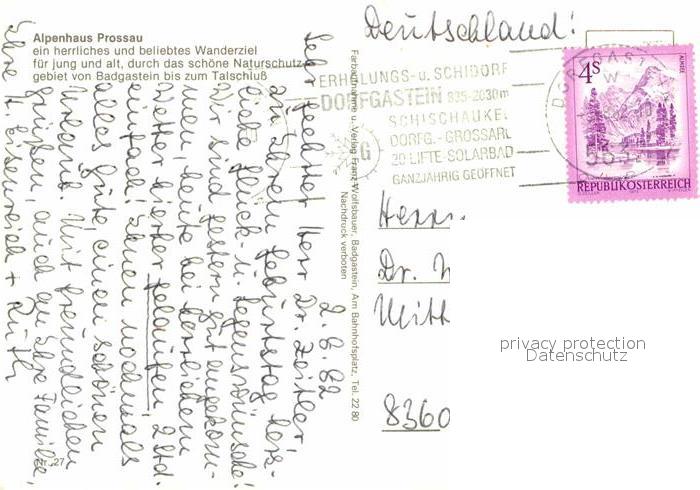 Alpenhaus Prossau
ein herrliches und beliebtes Wanderziel
für jung und alt, durch das schöne Naturschutz-
gebiet von Badgastein bis zum Talschluß
Deutschland!
ERHOLUNGS- u. SCHIDORF
DORFGASTEIN 835-2030m
SCHISCHAUKEL
DORFG.-GROSSARL
20 LIFTE-SOLARBAD
GANZJÄHRIG GEÖFFNET
DORFGASTEIN
4S
ALMSEE
REPUBLIK ÖSTERREICH
Farbaufnahme u. Verlag Franz Wolfsbauer, Badgastein, Am Bahnhofsplatz, Tel. 22 80
Nachdruck verboten
2.6.82
Sehr geehrter Herr Dr. Zeitler,
zu Ihrem Geburtstag herz-
liche Glück- u. Segenswünsche!
Wir sind gestern gut angekom-
men heute bei herrlichem
Wetter hierher gelaufen 2 Std.
einfach! Ihnen nochmals
alles Gute, einen schönen
Urlaub. Mit freundlichen
Grüßen, auch an Ihre Familie
Ihre H. Eisenreich + Ruth
Herrn
Dr.
Mitt
8360
privacy protection
Datenschutz
Nr. 27